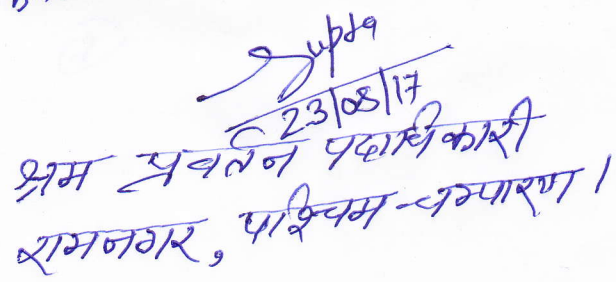 Gupta
23/08/17
श्रम प्रवर्तन पदाधिकारी
रामनगर, पश्चिम-चम्पारण।